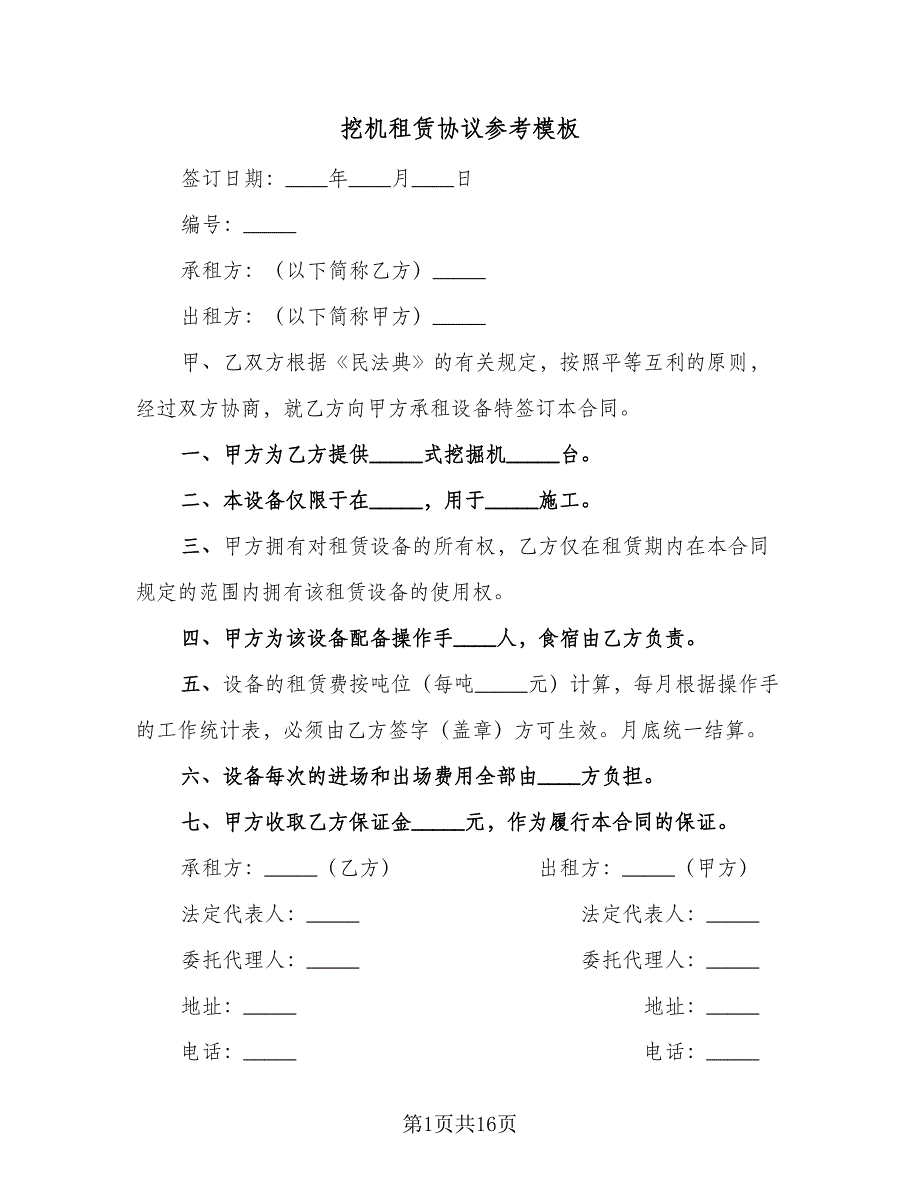 挖机租赁协议参考模板
签订日期：____年____月____日
编号：_____
承租方：（以下简称乙方）_____
出租方：（以下简称甲方）_____
甲、乙双方根据《民法典》的有关规定，按照平等互利的原则，
经过双方协商，就乙方向甲方承租设备特签订本合同。
一、甲方为乙方提供_____式挖掘机_____台。
二、本设备仅限于在_____，用于_____施工。
三、甲方拥有对租赁设备的所有权，乙方仅在租赁期内在本合同
规定的范围内拥有该租赁设备的使用权。
四、甲方为该设备配备操作手____人，食宿由乙方负责。
五、设备的租赁费按吨位（每吨_____元）计算，每月根据操作手
的工作统计表，必须由乙方签字（盖章）方可生效。月底统一结算。
六、设备每次的进场和出场费用全部由____方负担。
七、甲方收取乙方保证金_____元，作为履行本合同的保证。
承租方：_____（乙方） 出租方：_____（甲方）
法定代表人：_____ 法定代表人：_____
委托代理人：_____ 委托代理人：_____
地址：_____ 地址：_____
电话：_____ 电话：_____
第1页共16页